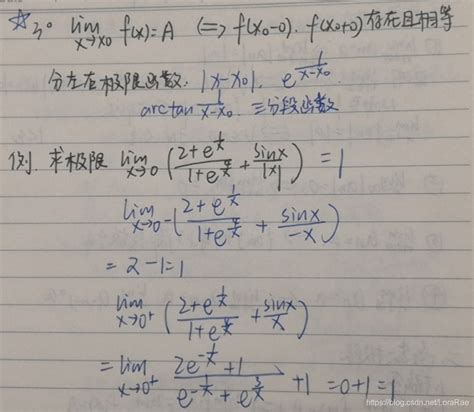 ☆ 3° lim x→x0 f(x)=A ⟺ f(x0-0), f(x0+0)存在且相等
分左右极限函数: |x-x0|, e^(1/(x-x0)),
arctan 1/(x-x0), 三分段函数
例. 求极限 lim x→0 ((2+e^(1/x))/(1+e^(4/x)) + sinx/|x|) = 1
lim x→0- ((2+e^(1/x))/(1+e^(4/x)) + sinx/-x)
= 2-1=1
lim x→0+ ((2+e^(1/x))/(1+e^(4/x)) + sinx/x)
= lim x→0+ (2e^(-1/x)+1)/(e^(-1/x)+e^(3/x)) +1 =0+1=1
https://blog.csdn.net/LoraRae